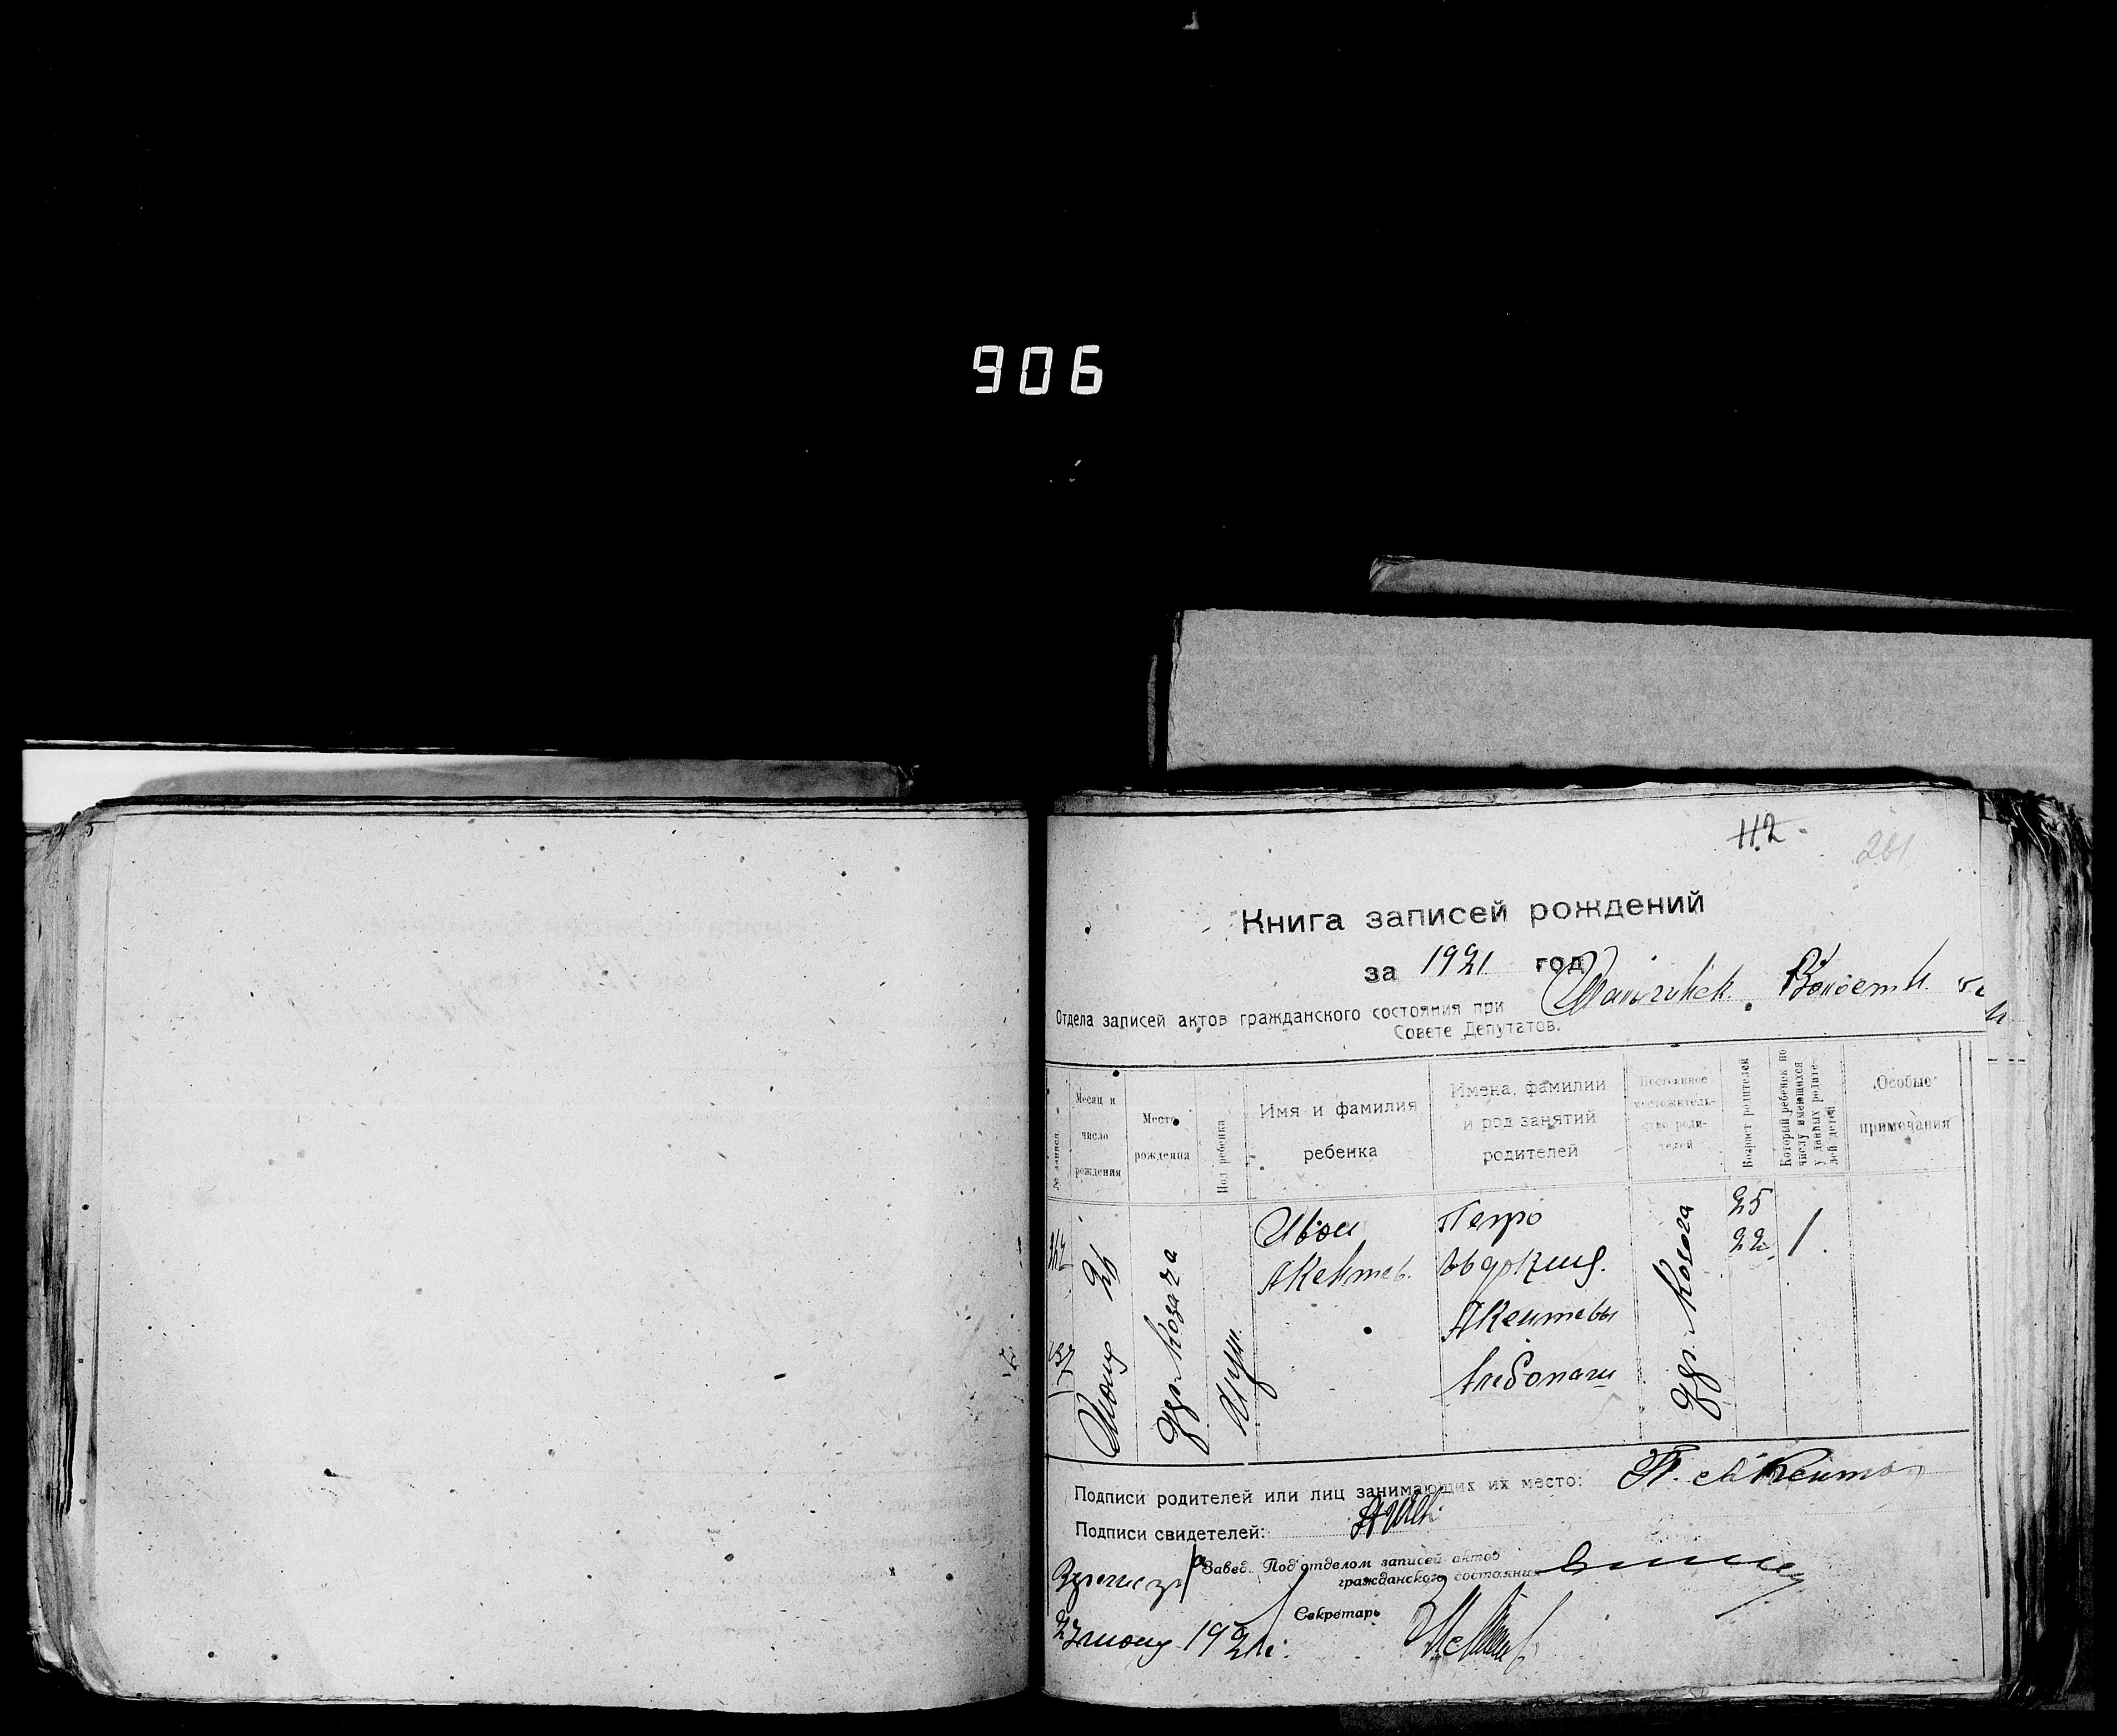 906
112
261
Книга записей рождений
за 1921 год
Волости
Отдела записей актов гражданского состояния при
Совете Депутатов.
№ записи
Месяц и число рождения
Место рождения
Пол ребенка
Имя и фамилия ребенка
Имена, фамилии и род занятий родителей
Постоянное местожительство родителей
Возраст родителей
Который ребенок по числу имеющихся у данных родителей детей
Особые примечания
Июня 26
дер. Козага
Муж.
Иван
Акентев.
Петро
Акентевы
Хлебопаш
дер. Козага
25
22
1
Подписи родителей или лиц занимающих их место: П. Акентьев
Подписи свидетелей:
Завед. Под'отделом записей актов
гражданского состояния
Секретарь
1921 г.